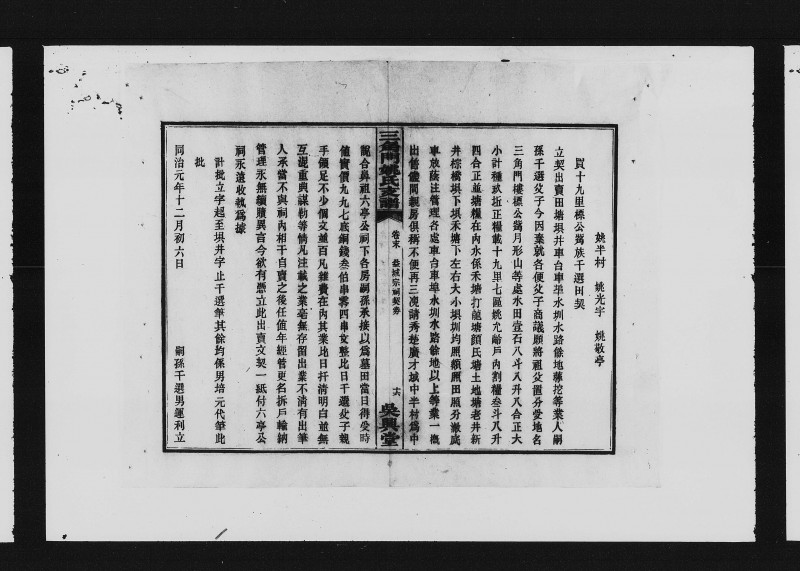 姚半村　姚光宇　姚敬亭
買十九里標公嵩族千選田契
立契出賣田塘垻井車台車埠水圳水路餘地蓀挖等業人嗣
孫千選父子今因棄就各便父子商議願將祖父置分受地名
三角門樓標公嵩月形山等處水田壹石八斗八升八合正大
小計種玖坵正糧載十九里七區姚允齡戶內割糧叁斗八升
四合正並塘糧在內水係禾塘打龍塘顏氏塘土地塘老井新
井棕樹垻下垻禾塘下左右大小垻圳均照額照田照分澈底
車放蔭注管理各處車台車埠水圳水路餘地以上等業一概
出售儘問親房俱稱不便再三凂請秀楚廣才城中半村爲中
三角門姚氏支譜
卷末　益城宗祠契券
十六
吳興堂
說合與祖六亭公祠下各房嗣孫承接以爲墓田當日得受時
值實價九九七底銅錢叁伯串零四串文整比日千選父子親
手領足不少個文並百凡雜費在內其業比日扦清明白並無
互混重典謀勒等情凡注載之業毫無存留出業不清有出筆
人承當不與祠內相干自賣之後任值年經管更名拆戶輸納
管理永無續贖異言今欲有憑立此出賣文契一紙付六亭公
祠永遠收執爲據
計批立字起至垻井字止千選筆其餘均係男培元代筆此
批
同治元年十二月初六日　嗣孫千選男運利立